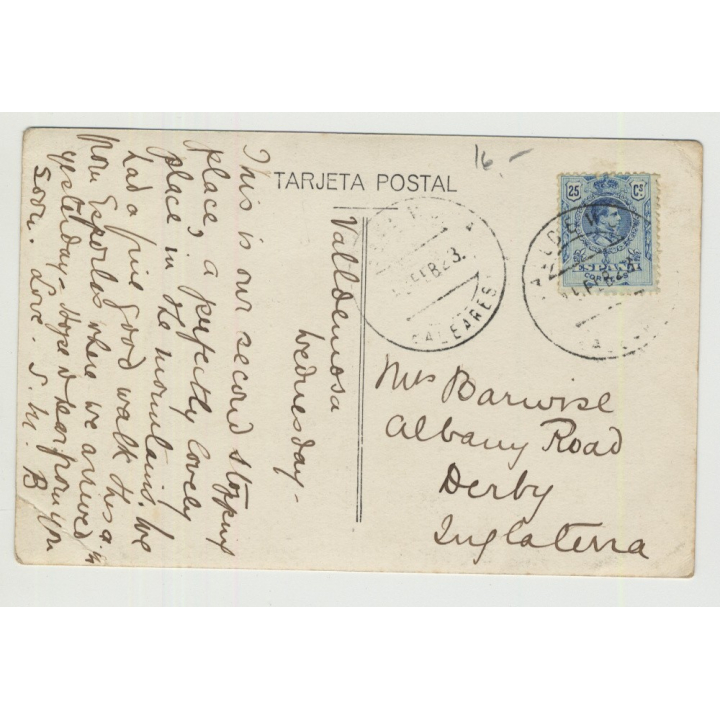 16.-
TARJETA POSTAL
25 Cs
FEB 23
BALEARES
Valldemosa
Wednesday -
This is our second stopping
place, a perfectly lovely
place in the mountains. We
had a fine good walk this a.m
from Esporlas where we arrived
yesterday - Hope to hear from you
soon. Love. S. M. B
Mrs Barwise
Albany Road
Derby
Inglaterra